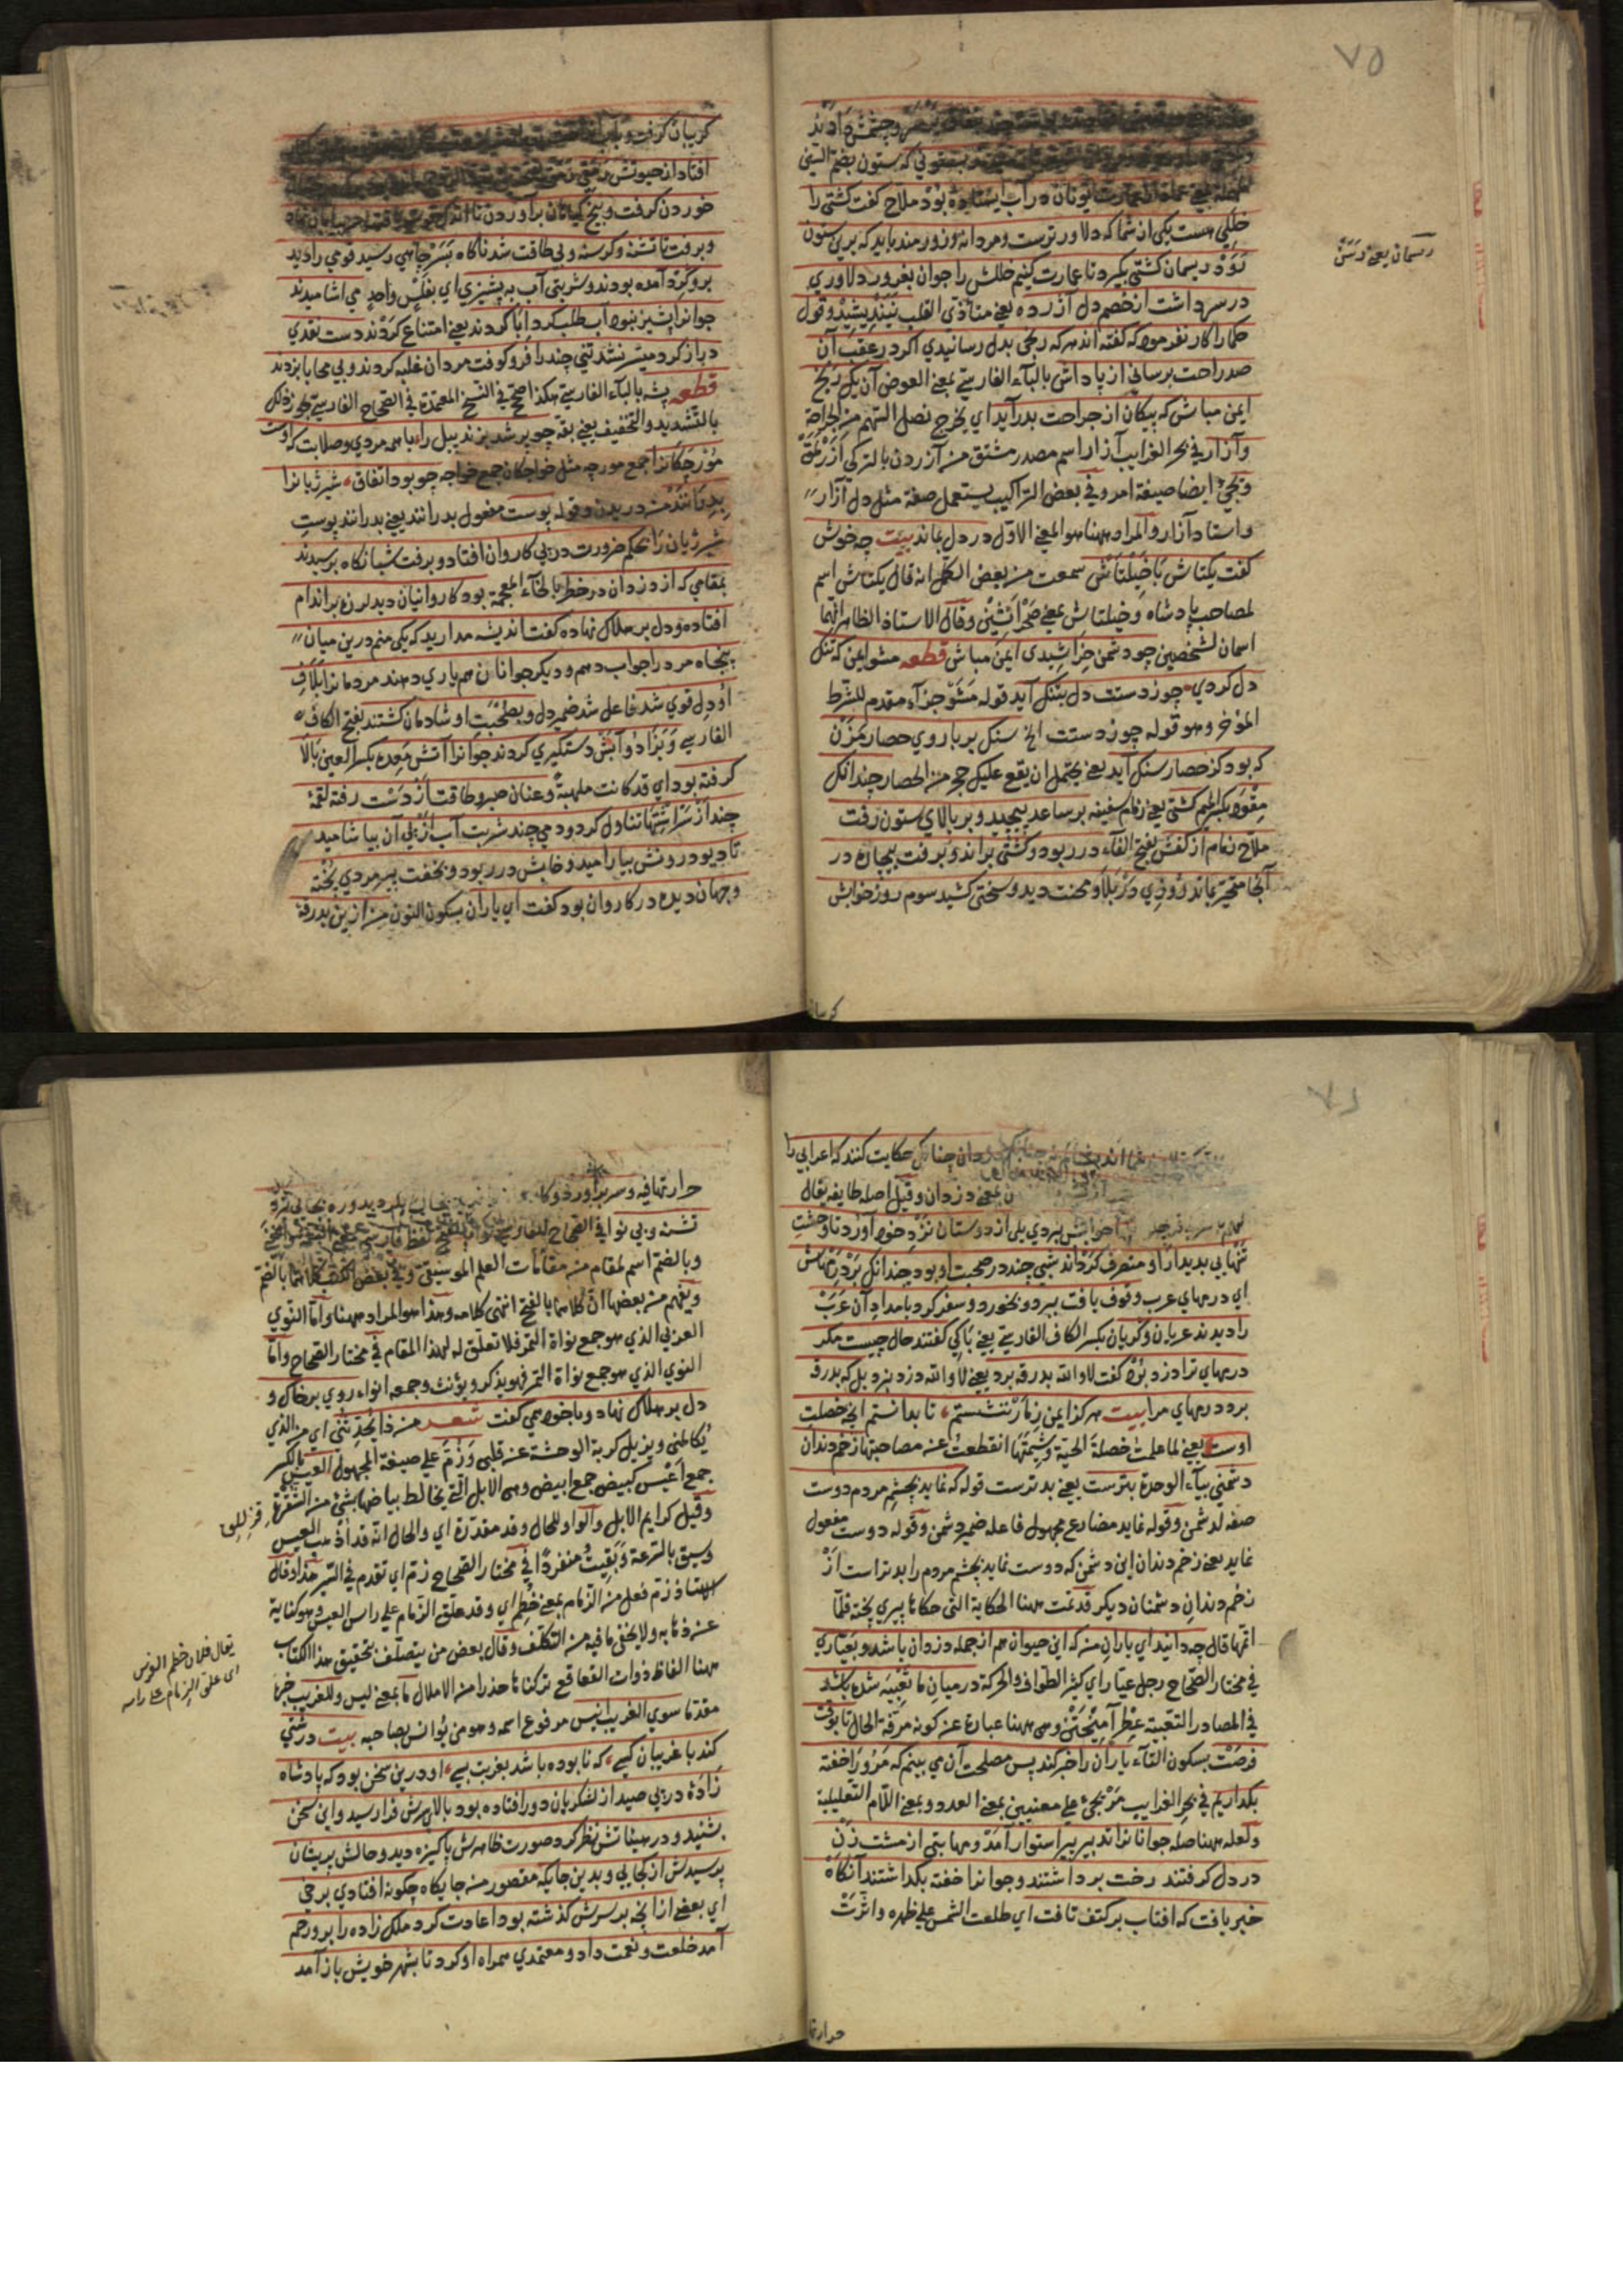 ٧٥
وچشمش دادند
بستوني كه ستون بضم السين
يونان در آب ايستاده بود ملاح كفت كشتى را
خللي هست يكى از شما كه دلاورترست ومردانه وزورمند بايد كه برين ستون
رود وريسمان كشتى بكيرد تا عمارت كنيم خللش را جوان بغرور دلاوري
درسر داشت از خصم دل آزرده يعنى متأذي القلب نينديشيد وقول
حكما را كار نفرموده كه كفته اند هر كه رنجى بدل رسانيدي اكر در عقب آن
صد راحت برسانى از پاداش بالباء الفارسية بمعنى العوض آن يك رنج
ايمن مباش كه پيكان از جراحت بدر آيد اي يخرج نصل السهم من الجراحة
وآزار في بحر الغرايب آزار اسم مصدر مشتق من آزردن بالتركي
ويجئ ايضا صيغة امر وفي بعض التراكيب يستعمل صفة مثل دل آزار
واستاد آزار والمراد ههنا هو المعنى الاول در دل بماند بيت چه خوش
كفت يكتاش با خيلتاش سمعت من بعض الكل انه قال يكتاش اسم
لمصاحب پادشاه وخيلتاش بمعنى وقال الاستاذ الظاهر انهما
اسمان لشخصين چو دشمن خراشيدى ايمن مباش قطعه مشو ايمن كه تنك
دل كردي چوز دستت دل بتنك آيد قوله مشو جزاء مقدم للشرط
المؤخر وهو قوله چوز دستت الخ سنك بر باروي حصار مزن
كه بود كز حصار سنك آيد يعنى يحتمل ان يقع عليك حجر من الحصار چندانك
مقود بكسر الميم كشتى يعنى زمام سفينه بر ساعد پيچيد وبر بالاي ستون رفت
ملاح زمام از كفش بفتح الفاء در ربود وكشتى براند وبرفت بيچاره در
آنجا متحير بماند روزي دو بلا ومحنت ديد وسختى كشيد سوم روز خوابش
ريسمان يعنى رسن
كريبان
كريبان كرفت وبآب
افتاد از حيوتش رمقى
خوردن كرفت وبيخ كياهان برآوردن تا اندك قوت يافت سر در بيابان نهاد
وبرفت تا تشنه وكرسنه وبى طاقت شد ناكاه بسر چاهى رسيد قومي را ديد
برو كرد آمده بودند وشربتى آب به پشيزي اي بفلس واحد مي آشاميدند
جوانرا پشيز نبود آب طلب كرد ابا كردند يعنى امتناع كردند دست تعدي
دراز كرد ميسر نشد تني چند را فرو كوفت مردان غلبه كردند وبي محابا بزدند
قطعه پشه بالباء الفارسية هكذا صحح في النسخ المعتمدة في الصحاح الفارسية
بالتشديد والتخفيف يعنى بقه چو پر شد بزند پيل را با همه مردي وصلابت كه اوست
مورچكانرا جمع مورچه مثل خواجكان جمع خواجه چو بود اتفاق شير ژيانرا
بدرانند من دريدن وقوله پوست مفعول بدرانند يعنى بدرانند پوست
شير ژيان را بحكم ضرورت در پى كاروان افتاد وبرفت شبانكاه برسيدند
بمقامي كه از دزدان در خطر بالخاء المعجمة بود كاروانيان ديد لرزه بر اندام
افتاده ودل بر هلاك نهاده كفت انديشه مداريد كه يكى منم درين ميان
پنجاه مرد را جواب دهم وديكر جوانان هم ياري دهند مردمانرا بلاف
او دل قوي شد فاعل شد ضمير دل وبصحبت او شادمان كشتند بفتح الكاف
الفارسى وبزاد وآبش دستكيري كردند جوانرا آتش معده بكسر العين بالا
كرفته بود اي قد كانت ملهبة وعنان صبر وطاقت از دست رفته لقمة
چند از سر اشتها تناول كرد ودمي چند شربت آب از پى آن بياشاميد
تا ديو درونش بياراميد وخابش در ربود وبخفت پير مردي پخته
وجهان ديده در كاروان بود كفت اي ياران بسكون النون من ازين بدرقه
٧٦
حكايت كنند كه اعرابى را
بمعنى دزدان وقيل اصله طايفه يقال
خوابش نبردي يكى از دوستان نزد خود آورد تا وحشت
تنهايى بديدار او منصرف كرداند شبي چند در صحبت او بود چندانك بر درمهاش
اي درمهاي عرب وقوف يافت ببرد وبخورد وسفر كرد بامداد آن عرب
را ديدند عريان وكريان بكسر الكاف الفارسية يعنى باكي كفتند حال چيست مكر
درمهاي ترا دزد برد كفت لا والله بدرقه برد يعنى لا والله دزد نبرد بل كه بدرقه
برد درمهاي مرا بيت هركز ايمن ز مار ننشستم تا بدانستم آنچه خصلت
اوست يعنى لما علمت خصلة الحية وشيمتها انقطعت عن مصاحبتها زخم دندان
دشمني بياء الوحدة بترست يعنى بدترست قوله كه نمايد بچشم مردم دوست
صفه لدشمن وقوله نمايد مضارع مجهول فاعله ضمير دشمن وقوله دوست مفعول
نمايد يعنى زخم دندان اين دشمن كه دوست نمايد بچشم مردم را بدتر است از
زخم دندان دشمنان ديكر قد تمت ههنا الحكاية التي حكاها پيري پخته فلما
اتمها قال چه دانيد اي ياران من كه اين حيوان هم از جمله دزدان باشد وبعياري
في مختار الصحاح رجل عيار اي كثير الطواف والحركة در ميان ما تعبيه شده باشد
في المصادر التعبية عطر آميختن وهى ههنا عبارة عن كونه مرفه الحال تا بوقت
فرصت بسكون التاء ياران را خبر كند پس مصلحت آن مي بينم كه مرورا خفته
بكذاريم في بحر الغرايب مر يجئ على معنيين بمعنى العدد وبمعنى اللام التعليلية
ولعله ههنا صله جوانانرا تدبير پير استوار آمد ومهابتى از مشت زن
در دل كرفتند رخت برداشتند وجوانرا خفته بكذاشتند آنكاه
خبر يافت كه افتاب بر كتف تافت اي طلعت الشمس على ظهره واثرت
حرارتها
حرارتها فيه وسر برآورد وكا
تشنه وبى نوا في الصحاح الفارسي
وبالضم اسم لمقام من مقامات العلم الموسيقى وفي بعض الكتب كلاهما بالضم
ويفهم من بعضها ان كلاهما بالفتح انتهى كلامه وهذا هو المراد ههنا واما النوي
العربي الذي هو جمع نواة التمر فلا تعلق له لهذا المقام في مختار الصحاح واما
النوي الذي هو جمع نواة التمر فهو يذكر ويؤنث وجمعه انواء روي بر خاك و
دل بر هلاك نهاد وباخود همي كفت شعر من ذا يحدثني اي من الذي
يكالمني ويزيل كربة الوحشة عن قلبي وزم على صيغة المجهول العيس بالكسر
جمع اعيس كبيض جمع ابيض وهى الابل التي يخالط بياضها شئ من الشقرة
وقيل كرايم الابل والواو للحال وقد مقدرة اي والحال انه قد اذهب العيس
وسيق بالسرعة وبقيت منفردا في مختار الصحاح زم اي تقدم في السير هذا وقال
الاستاذ زم فعل من الزمام بمعنى خطم اي وقد علق الزمام على راس العيس وهو كناية
عن ذهابه ولا يخفى ما فيه من التكلف وقال بعض من يتصلف بتحقيق هذا الكتاب
ههنا الفاظ ذوات القعاقع تركناها حذرا من الاملال ما بمعنى ليس وللغريب خبرها
مقدما سوي الغريب انيس مرفوع اسمه وهو من يؤانس بصاحبه بيت درشتي
كند با غريبان كسى كه نابوده باشد بغربت بسى او درين سخن بود كه پادشاه
زادهٔ در پى صيد از لشكريان دور افتاده بود بالاى سرش فرا رسيد واين سخن
بشنيد ودر هيئاتش نظر كرد صورت ظاهرش پاكيزه ديد وحالش پريشان
پرسيدش از كجايي وبدين جايكه مقصور من جايكاه چكونه افتادي برخى
اي بعضى از آنچه بر سرش كذشته بود اعادت كرد ملك زاده را برو رحم
آمد خلعت ونعمت داد ومعتمدي همراه او كرد تا بشهر خويش باز آمد
يقال فلان خطم الفرس
اى علق الزمام على راسه